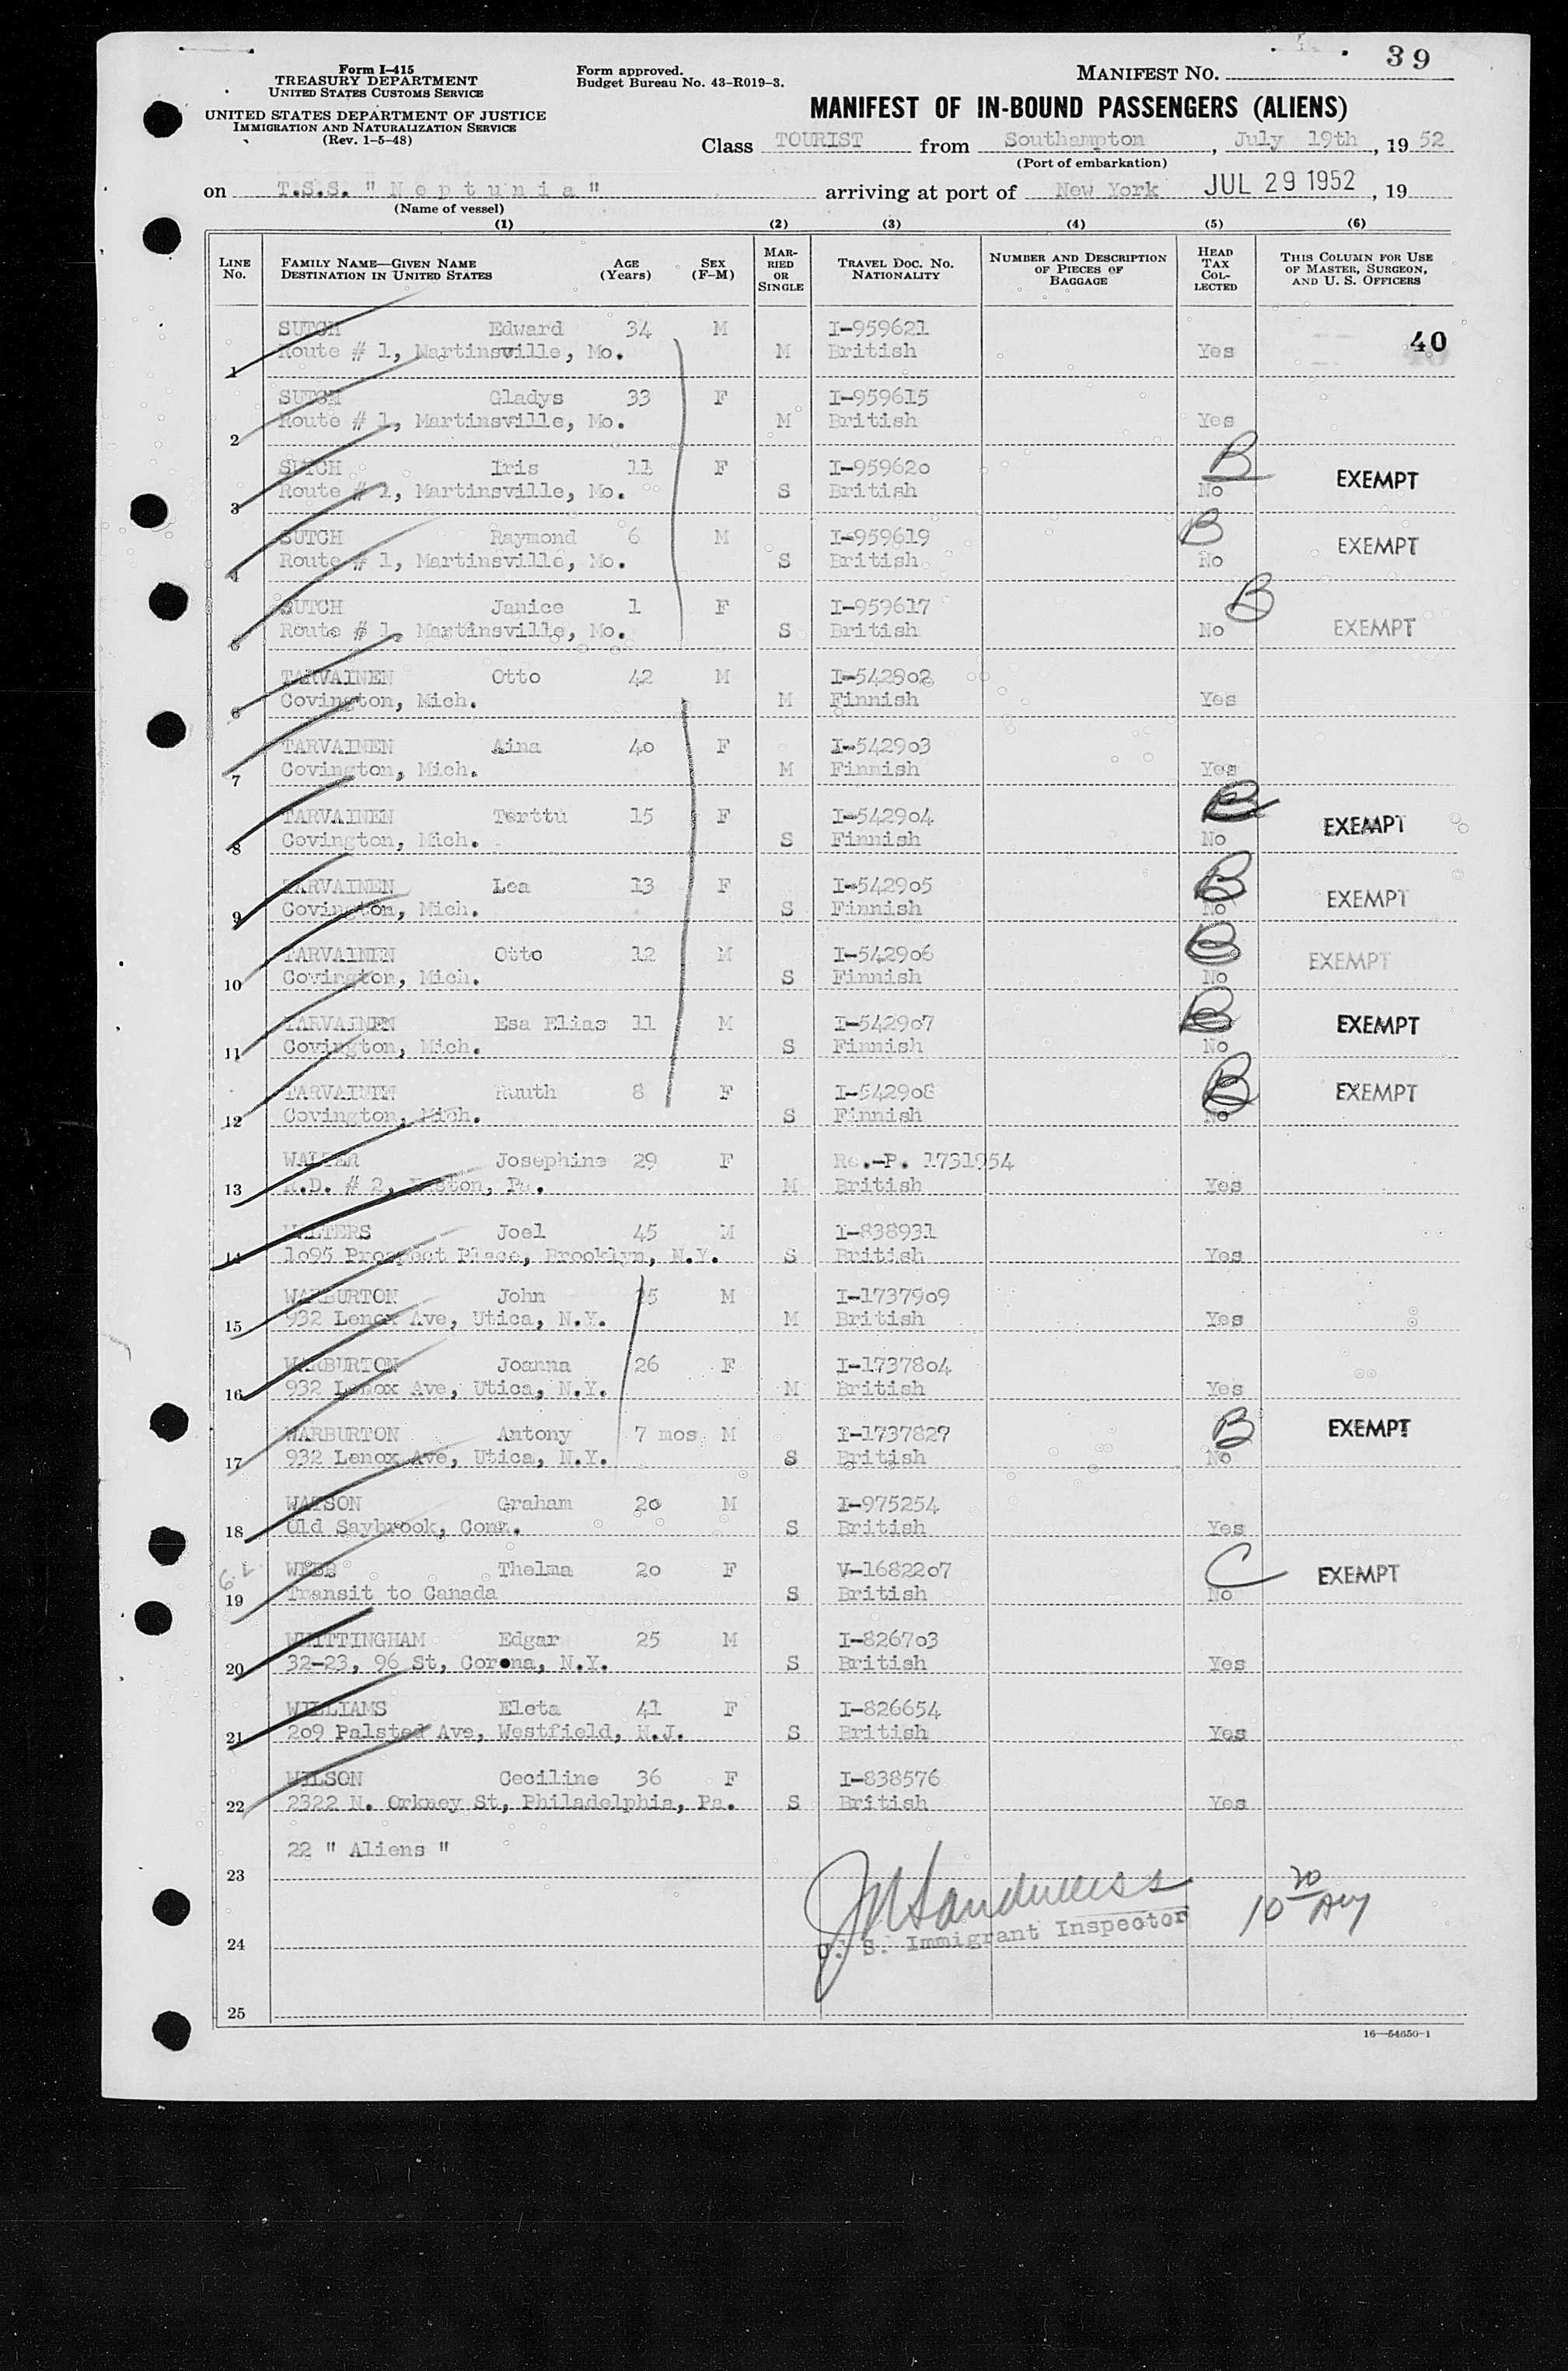 39
Form I-415
TREASURY DEPARTMENT
UNITED STATES CUSTOMS SERVICE
UNITED STATES DEPARTMENT OF JUSTICE
IMMIGRATION AND NATURALIZATION SERVICE
(Rev. 1-5-48)
Form approved.
Budget Bureau No. 43-R019-3.
MANIFEST NO.
MANIFEST OF IN-BOUND PASSENGERS (ALIENS)
Class TOURIST from Southampton, July 19th, 19 52
(Port of embarkation)
on T.S.S. "Neptunia" arriving at port of New York JUL 29 1952, 19
(Name of vessel)
(1) (2) (3) (4) (5) (6)
LINE No. FAMILY NAME—GIVEN NAME DESTINATION IN UNITED STATES AGE (Years) SEX (F-M) MARRIED OR SINGLE TRAVEL DOC. NO. NATIONALITY NUMBER AND DESCRIPTION OF PIECES OF BAGGAGE HEAD TAX COLLECTED THIS COLUMN FOR USE OF MASTER, SURGEON, AND U. S. OFFICERS
SUTCH Edward 34 M I-959621 40
1 Route # 1, Martinsville, Mo. M British Yes
SUTCH Gladys 33 F I-959615
2 Route # 1, Martinsville, Mo. M British Yes
SUTCH Iris 11 F I-959620 B EXEMPT
3 Route # 1, Martinsville, Mo. S British No
SUTCH Raymond 6 M I-959619 B EXEMPT
4 Route # 1, Martinsville, Mo. S British No
SUTCH Janice 1 F I-959617 B
5 Route # 1, Martinsville, Mo. S British No EXEMPT
TARVAINEN Otto 42 M I-542902
6 Covington, Mich. M Finnish Yes
TARVAINEN Aina 40 F I-542903
7 Covington, Mich. M Finnish Yes
TARVAINEN Terttu 15 F I-542904 B EXEMPT
8 Covington, Mich. S Finnish No
TARVAINEN Lea 13 F I-542905 B EXEMPT
9 Covington, Mich. S Finnish No
TARVAINEN Otto 12 M I-542906 B EXEMPT
10 Covington, Mich. S Finnish No
TARVAINEN Esa Elias 11 M I-542907 B EXEMPT
11 Covington, Mich. S Finnish No
TARVAINEN Ruuth 8 F I-542908 B EXEMPT
12 Covington, Mich. S Finnish No
WALTER Josephine 29 F Re.-P. 1731954
13 R.D. # 2, Easton, Pa. M British Yes
WALTERS Joel 45 M I-838931
14 1095 Prospect Place, Brooklyn, N.Y. S British Yes
WARBURTON John 25 M I-1737909
15 932 Lenox Ave, Utica, N.Y. M British Yes
WARBURTON Joanna 26 F I-1737804
16 932 Lenox Ave, Utica, N.Y. M British Yes
WARBURTON Antony 7 mos M I-1737827 B EXEMPT
17 932 Lenox Ave, Utica, N.Y. S British No
WATSON Graham 20 M I-975254
18 Old Saybrook, Conn. S British Yes
WEBB Thelma 20 F V-1682207 C EXEMPT
19 Transit to Canada S British No
WHITTINGHAM Edgar 25 M I-826703
20 32-23, 96 St, Corona, N.Y. S British Yes
WILLIAMS Eleta 41 F I-826654
21 209 Palsted Ave, Westfield, N.J. S British Yes
WILSON Ceciline 36 F I-838576
22 2322 N. Orkney St, Philadelphia, Pa. S British Yes
22 " Aliens "
23
U. S. Immigrant Inspector
24
25
16—54650-1